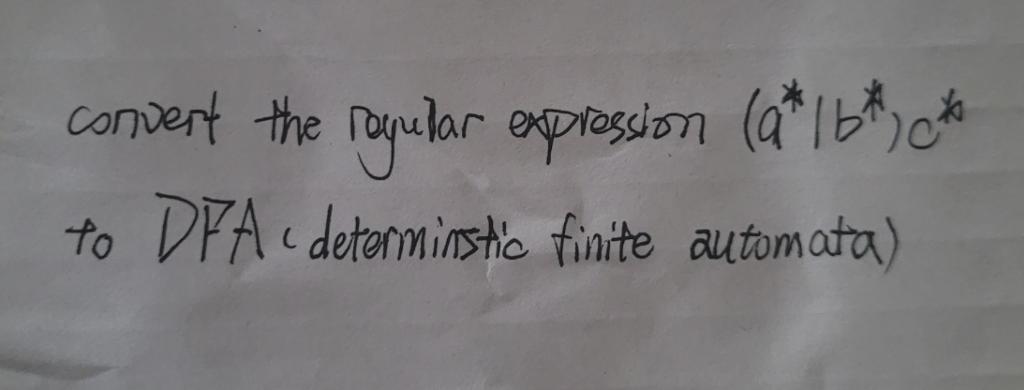 convert the regular expression (a*|b*)c*
to DFA (determinstic finite automata)